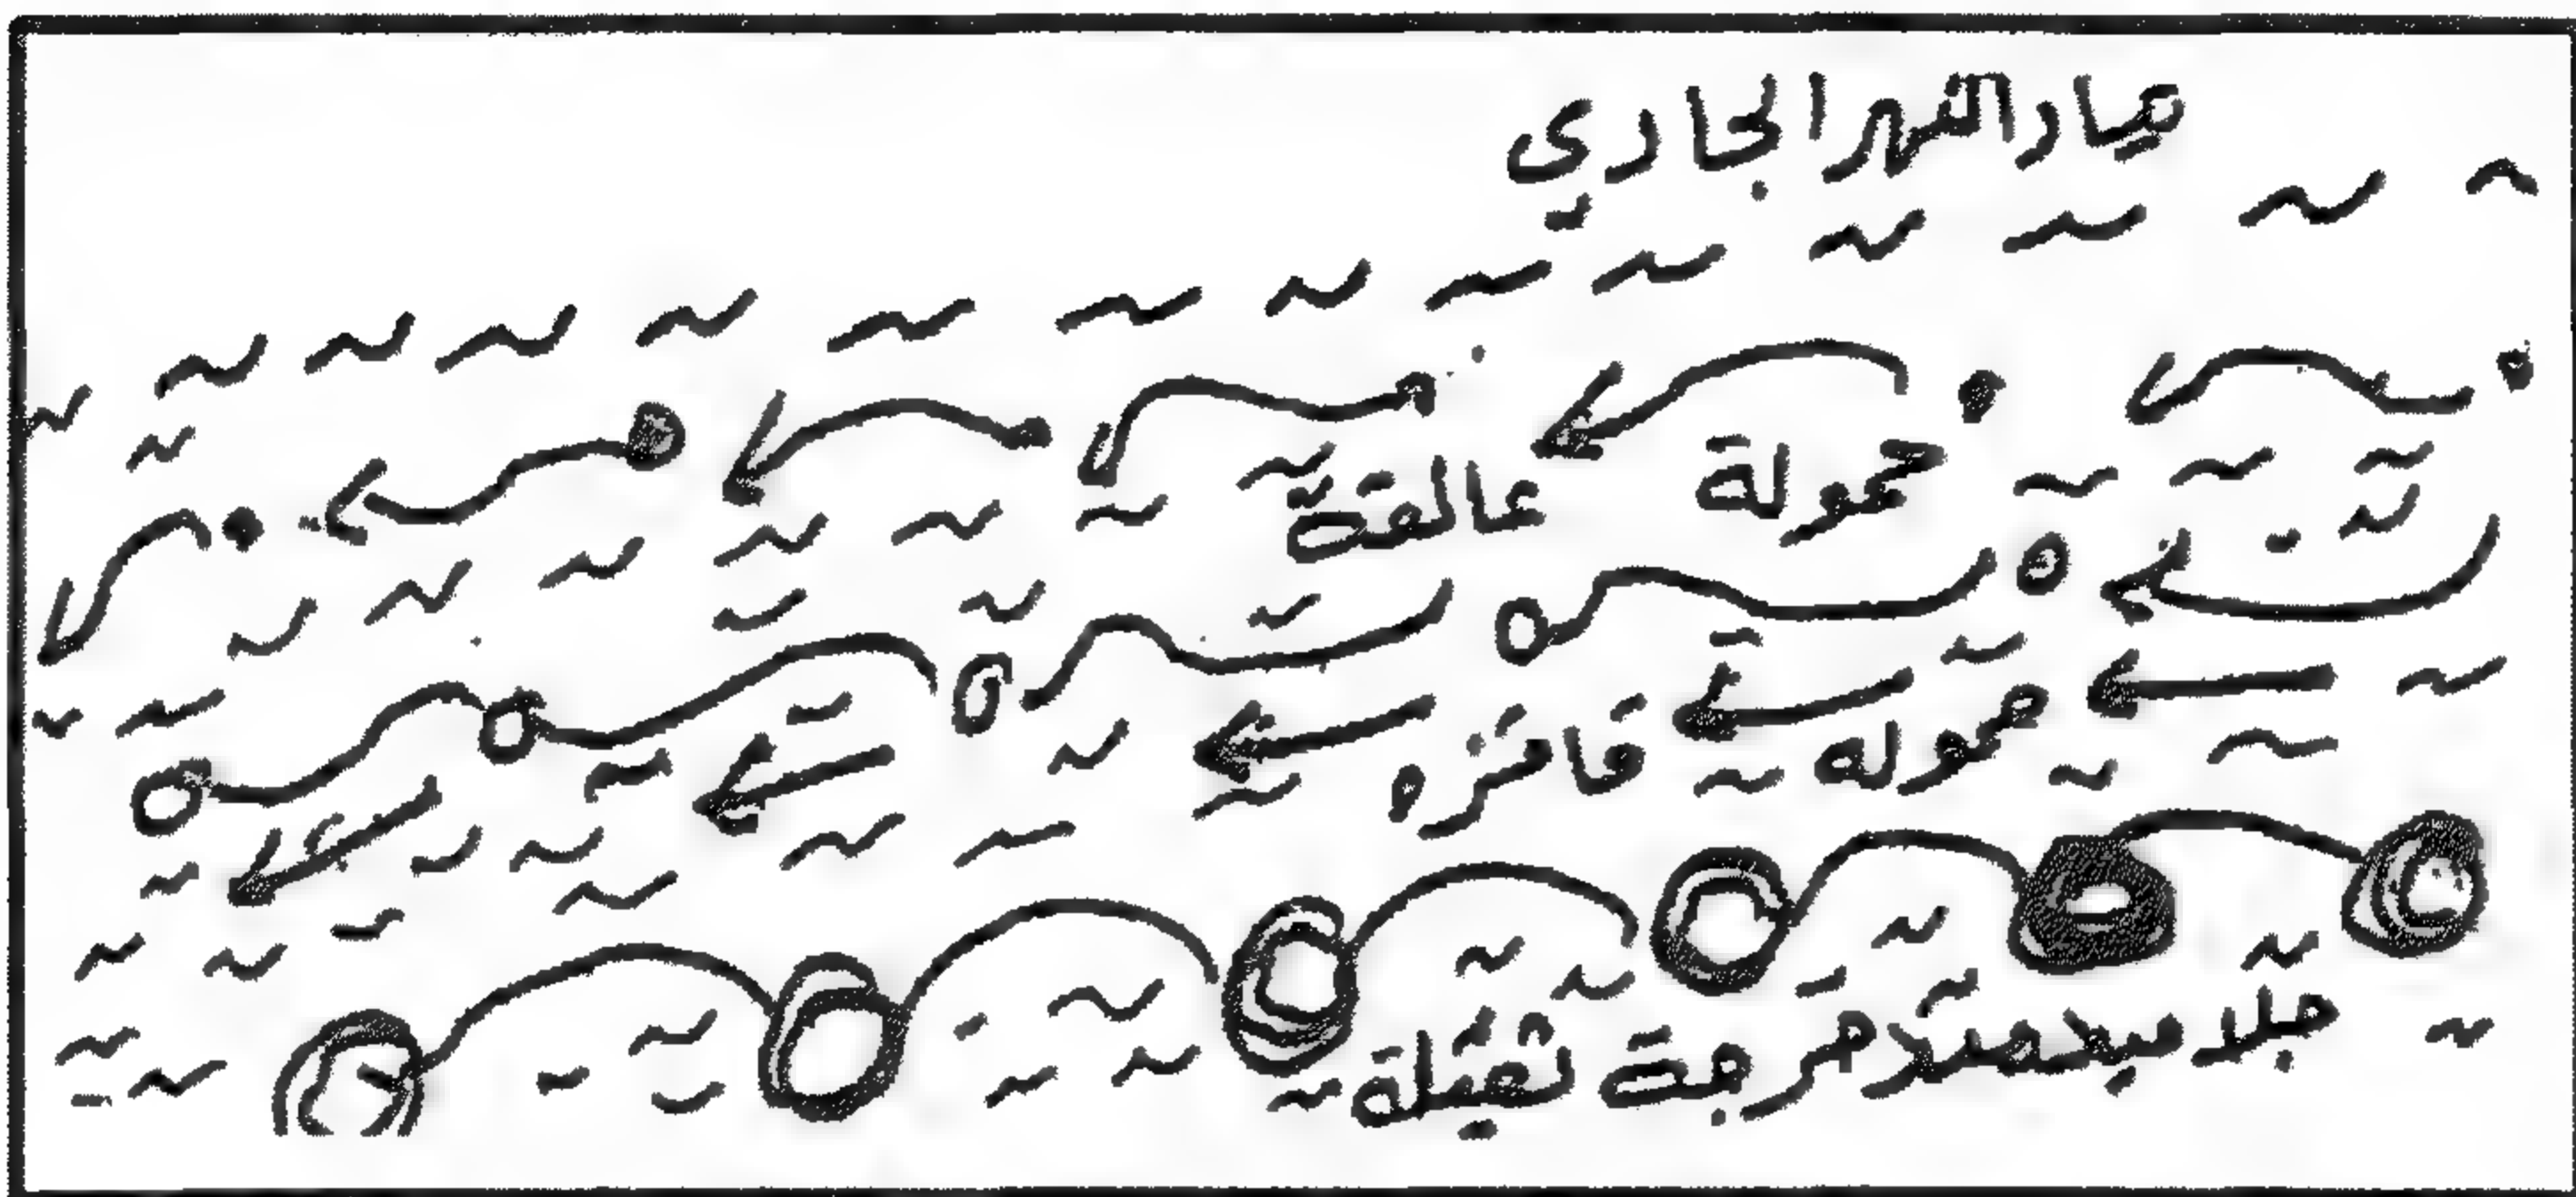 مياد النهر الجادي
حمولة عالقة
حمولة قافزه
جلاميد متدحرجة ثقيلة